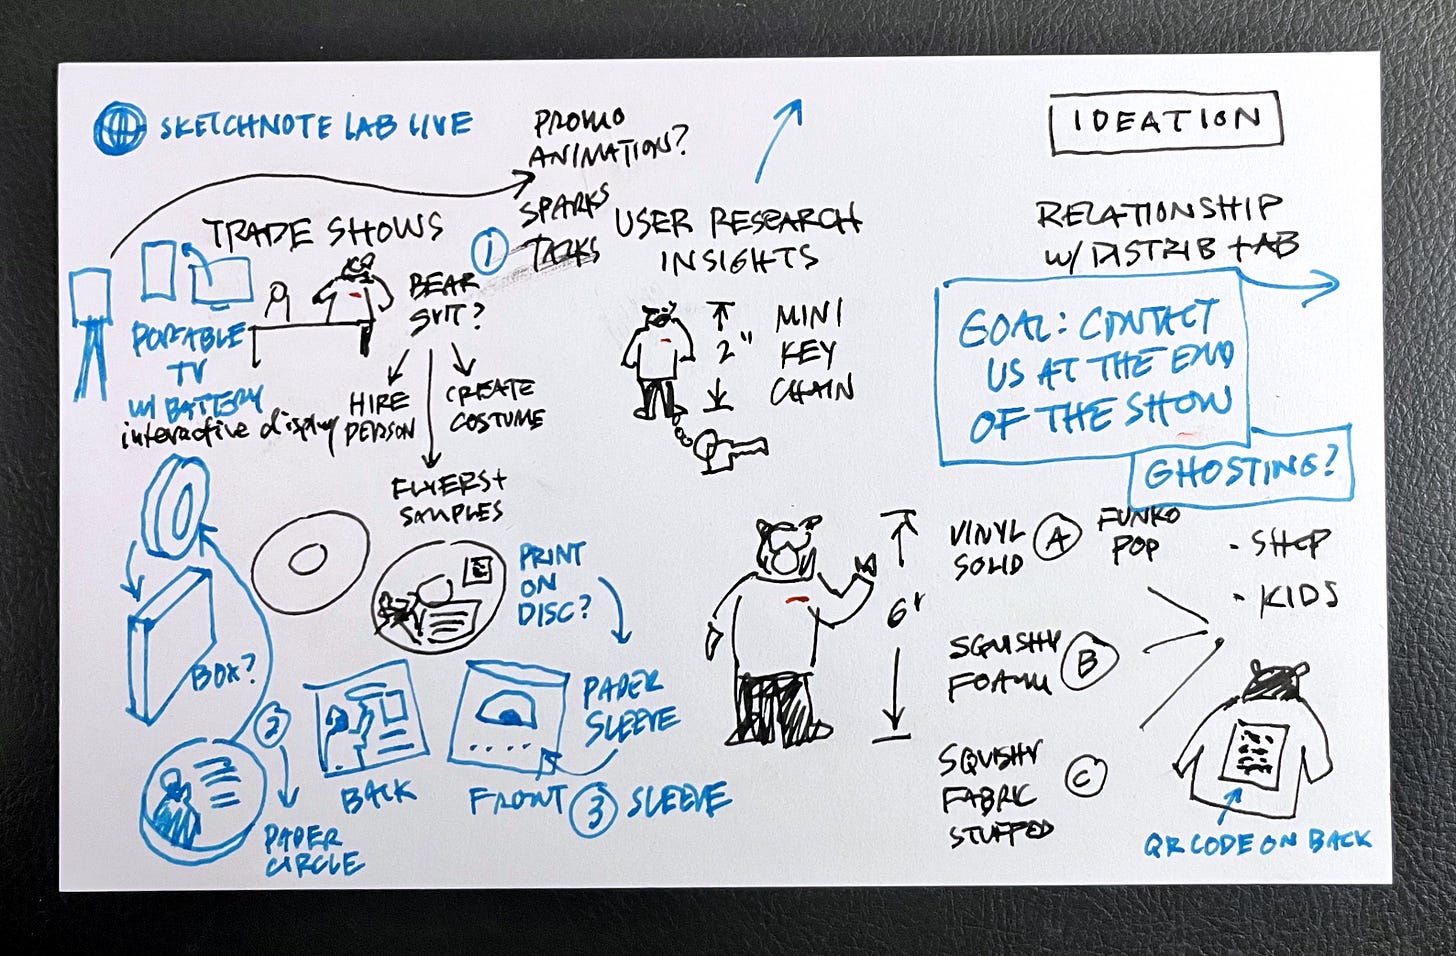 SKETCHNOTE LAB LIVE
PROMO
ANIMATION?
SPARKS
TALKS
IDEATION
TRADE SHOWS
1
BEAR
SUIT?
PORTABLE
TV
W/ BATTERY
interactive display
HIRE
PERSON
CREATE
COSTUME
FLYERS+
SAMPLES
USER RESEARCH
INSIGHTS
2"
MINI
KEY
CHAIN
RELATIONSHIP
W/ DISTRIB + AB
GOAL: CONTACT
US AT THE END
OF THE SHOW
GHOSTING?
PRINT
ON
DISC?
BOX?
2
PAPER
CIRCLE
BACK
PAPER
SLEEVE
FRONT 3 SLEEVE
6"
VINYL
SOLID
A
FUNKO
POP
- SHOP
- KIDS
SQUISHY
FOAM
B
SQUISHY
FABRIC
STUFFED
C
QR CODE ON BACK